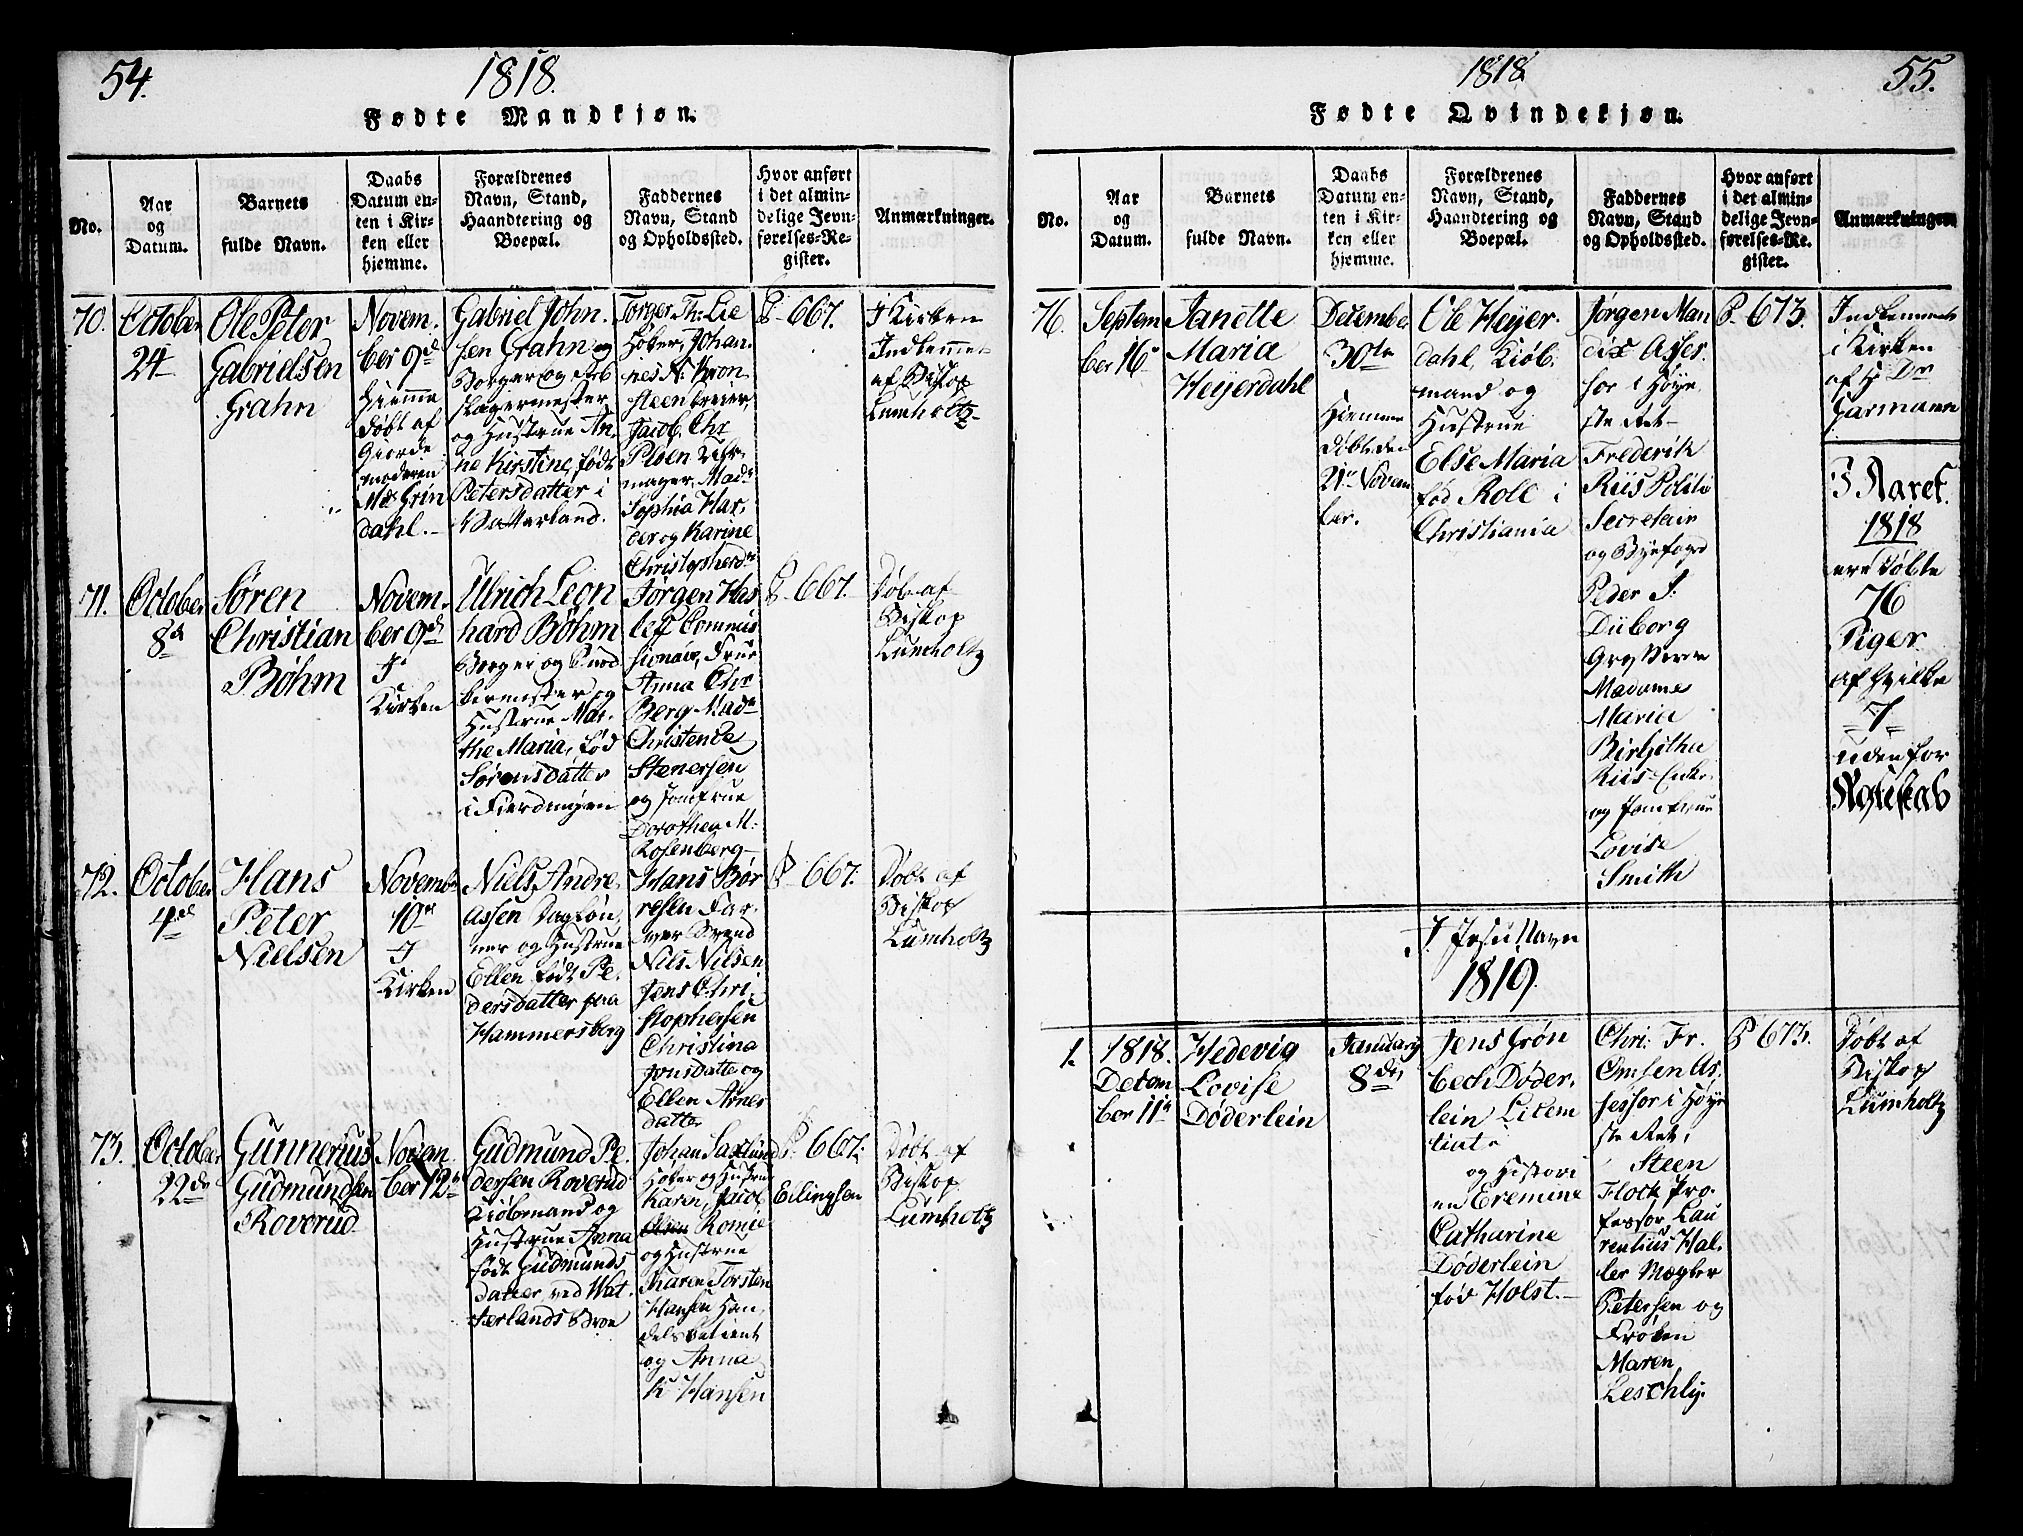 54.
1818.
Fødte Mandkjøn.
No.
Aar
og
Datum.
Barnets
fulde Navn.
Daabs
Datum en-
ten i Kir-
ken eller
hjemme.
Forældrenes
Navn, Stand,
Haandtering og
Boepæl.
Faddernes
Navn, Stand
og Opholdssted.
Hvor anført
i det almin-
delige Jevn-
førelses-Re-
gister.
Anmærkninger.
70.
October
24
Ole Peter
Gabrielsen
Grahn
Novem-
ber 9de
Hjemme
døbt af
Giorde
moderen
Grin
dahl.
Gabriel John.
sen Grahn og
Borger og
slagermester
og Hustrue An-
ne Kirstine, født
Petersdatter i
Vatterland.
Torger Th: Lie
Høker, Johan-
nes N. Kron
steen
Jacob Chr
Ploen Uhr-
mager, Mad:
Sophia Har-
der og Karine
Christophersd:
P. 667.
I Kirken
Indlemmet
af Biskop
Lumholtz
71.
October
8de
Søren
Christian
Bøhm
Novem-
ber 9de
I
Kirken
Ulrich Leon
hard Bøhm
Borger og
bermester og
Hustrue Mar-
the Maria, fød
Sørensdatter
i Fierdingen
Jørgen Has
lef Commis
sionair, Frue
Anna Chr
Berg Made
Christence
Stenersen
og Jomfrue
Dorothea M:
Rosenberg
P. 667.
Døbt af
Biskop
Lumholtz
72.
October
4de
Hans
Peter
Nielsen
Novembr
10de
I
Kirken
Niels Andre-
assen Dagløn-
ner og Hustrue
Ellen født Pe-
dersdatter paa
Hammersborg
Hans Bør
resen Far-
ver Svend
Nils Nilsen
Jens Chri-
stophersen
Christina
Jonsdatte og
Ellen Arnes
datter
P. 667.
Døbt af
Biskop
Lumholtz
73.
October
22de
Gunnerius
Gudmundsen
Roverud
Novem
ber 12te
Gudmund Pe-
dersen Roverud
Kiøbmand og
Hustrue Anna
født Gudmunds
datter, ved Vat-
terlands Broe
Johan Saxlund
Høker og Hustrue
Karen, Jacob
Romie
og Hustrue
Maren Torsten
Hansen Han-
delsbetient
og Anna
K Hansen
P. 667.
Eilingsen
Døbt af
Biskop
Lumholtz
1818
55.
Fødte Qvindekjøn.
No.
Aar
og
Datum.
Barnets
fulde Navn.
Daabs
Datum en-
ten i Kir-
ken eller
hjemme.
Forældrenes
Navn, Stand,
Haandtering og
Boepæl.
Faddernes
Navn, Stand
og Opholdssted.
Hvor anført
i det almin-
delige Jevn-
førelses-Re-
gister.
Anmærkninger
76.
Septem
ber 16
Janette
Maria
Heyerdahl
December
30te
Hjemme
døbt den
21de Novem
ber.
Ole Heyer-
dahl, Kiøb-
mand og
Hustrue
Else Maria
fød Roll i
Christiania
Jørgen Man
dix Asses-
sor i Høye-
ste Ret
Frederik
Riis Politi
Secretair
og Byefoged
Peder S:
Duborg
Madame
Maria
Birgitha
Riis
og Jomfrue
Lovise
Smith
P. 673.
Indlemmet
i Kirken
af H Dr
Garmann
I Aaret
1818
ere døbte
76
Piger
af hvilke
7
udenfor
Ægteskab
I Jesu Navn
1819.
1.
1818.
Decem
ber 11te
Hedevig
Lovise
Døderlein
Januarii
8de
Jens Grøn
bech Døder-
lein
og Hustru
Catharine
Døderlein
fød Holst.
Chri: Fr.
Omsen As-
sessor i Høye
ste Ret,
Steen
Flock Pro-
fessor, Lau
rentius Hal-
ler Mægler
Petersen og
Frøken
Maren
Leschly.
P 673.
Døbt af
Biskop
Lumholtz